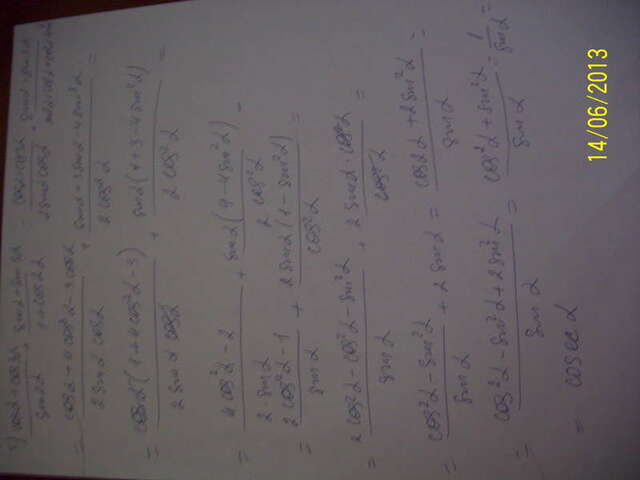 cosα + cos3α / sin2α + sinα + sin3α / 1 + cos2α = cosα + cos3α / 2sinα cosα + sinα + sin3α
= cosα + 4cos³α - 3cosα / 2 sinα cosα + sinα + 3sinα - 4sin³α / 2 cos²α =
= cosα(1 + 4cos²α - 3) / 2 sinα cosα + sinα(1 + 3 - 4sin²α) / 2 cos²α =
= 4cos²α - 2 / 2·sinα + sinα(4 - 4sin²α) / 2 cos²α =
= 2cos²α - 1 / sinα + 2sinα(1 - sin²α) / cos²α =
= 2cos²α - cos²α - sin²α / sinα + 2sinα · cos²α / cos²α =
= cos²α - sin²α / sinα + 2sinα = cos2α + 2sin²α / sinα =
= cos²α - sin²α + 2sin²α / sinα = cos²α + sin²α / sinα = 1 / sinα =
= cosec α
14/06/2013